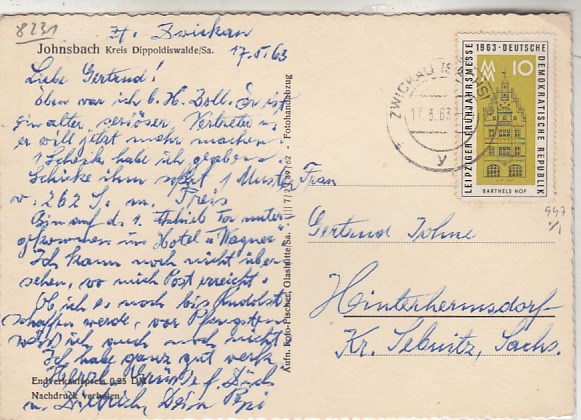 8231
z. Zt. Zwickau
Johnsbach Kreis Dippoldiswalde/Sa.
17.5.63
Liebe Gertrud!
Eben war ich b. H. Zoll. Er ist
ein alter seriöser Vertreter u.
er will jetzt mehr machen.
habe ich gegeben.
Schicke ihm sofort 1 Muster
v. 262 S. m. Preis
Bin auf d. unter
gekommen im Hotel "Wagner"
Ich kann noch nicht über-
sehen, wo mich Post erreicht.
Ob ich es noch bis Rudolst.
schaffen werde, vor Pfingsten
ich auch noch nicht
Ich habe ganz gut verk.
Herzl. Grüße f. Dich
u. Dein
Endverkaufspreis 0,25 DM
Nachdruck verboten
Aufn. Foto-Fischer, Glashütte/Sa.
Fotohandabzug
LEIPZIGER FRÜHJAHRSMESSE
1963 · DEUTSCHE
DEMOKRATISCHE REPUBLIK
MM
10
BARTHELS HOF
ZWICKAU
63
y
947
Frau
Gertrud Johne
Hinterhermsdorf
Kr. Sebnitz, Sachs.